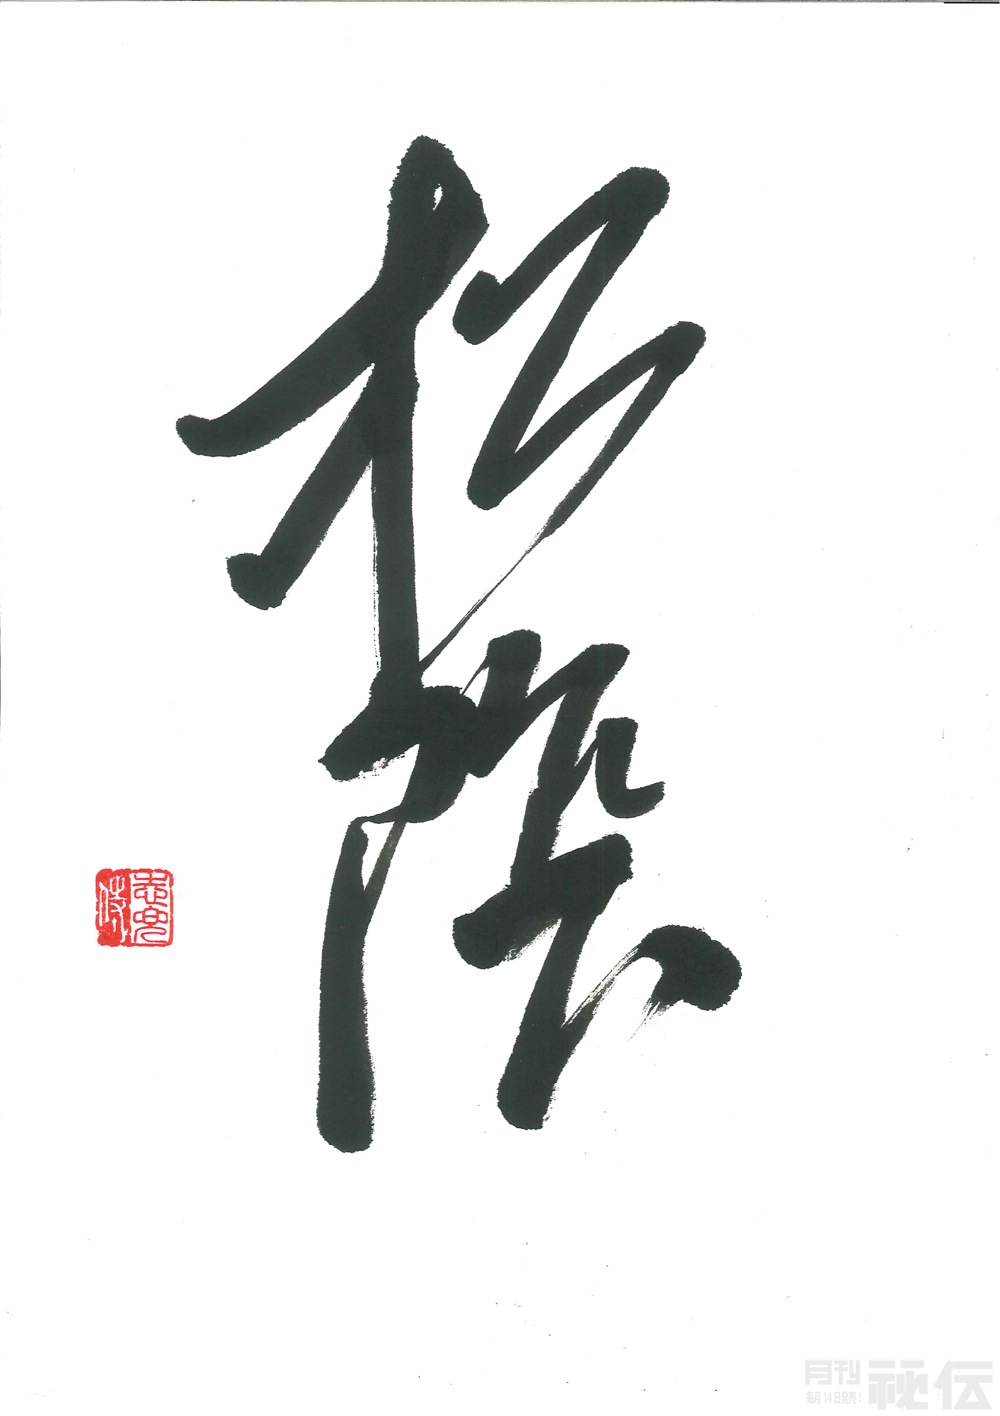 松陰
月刊
秘伝
毎月14日発売!